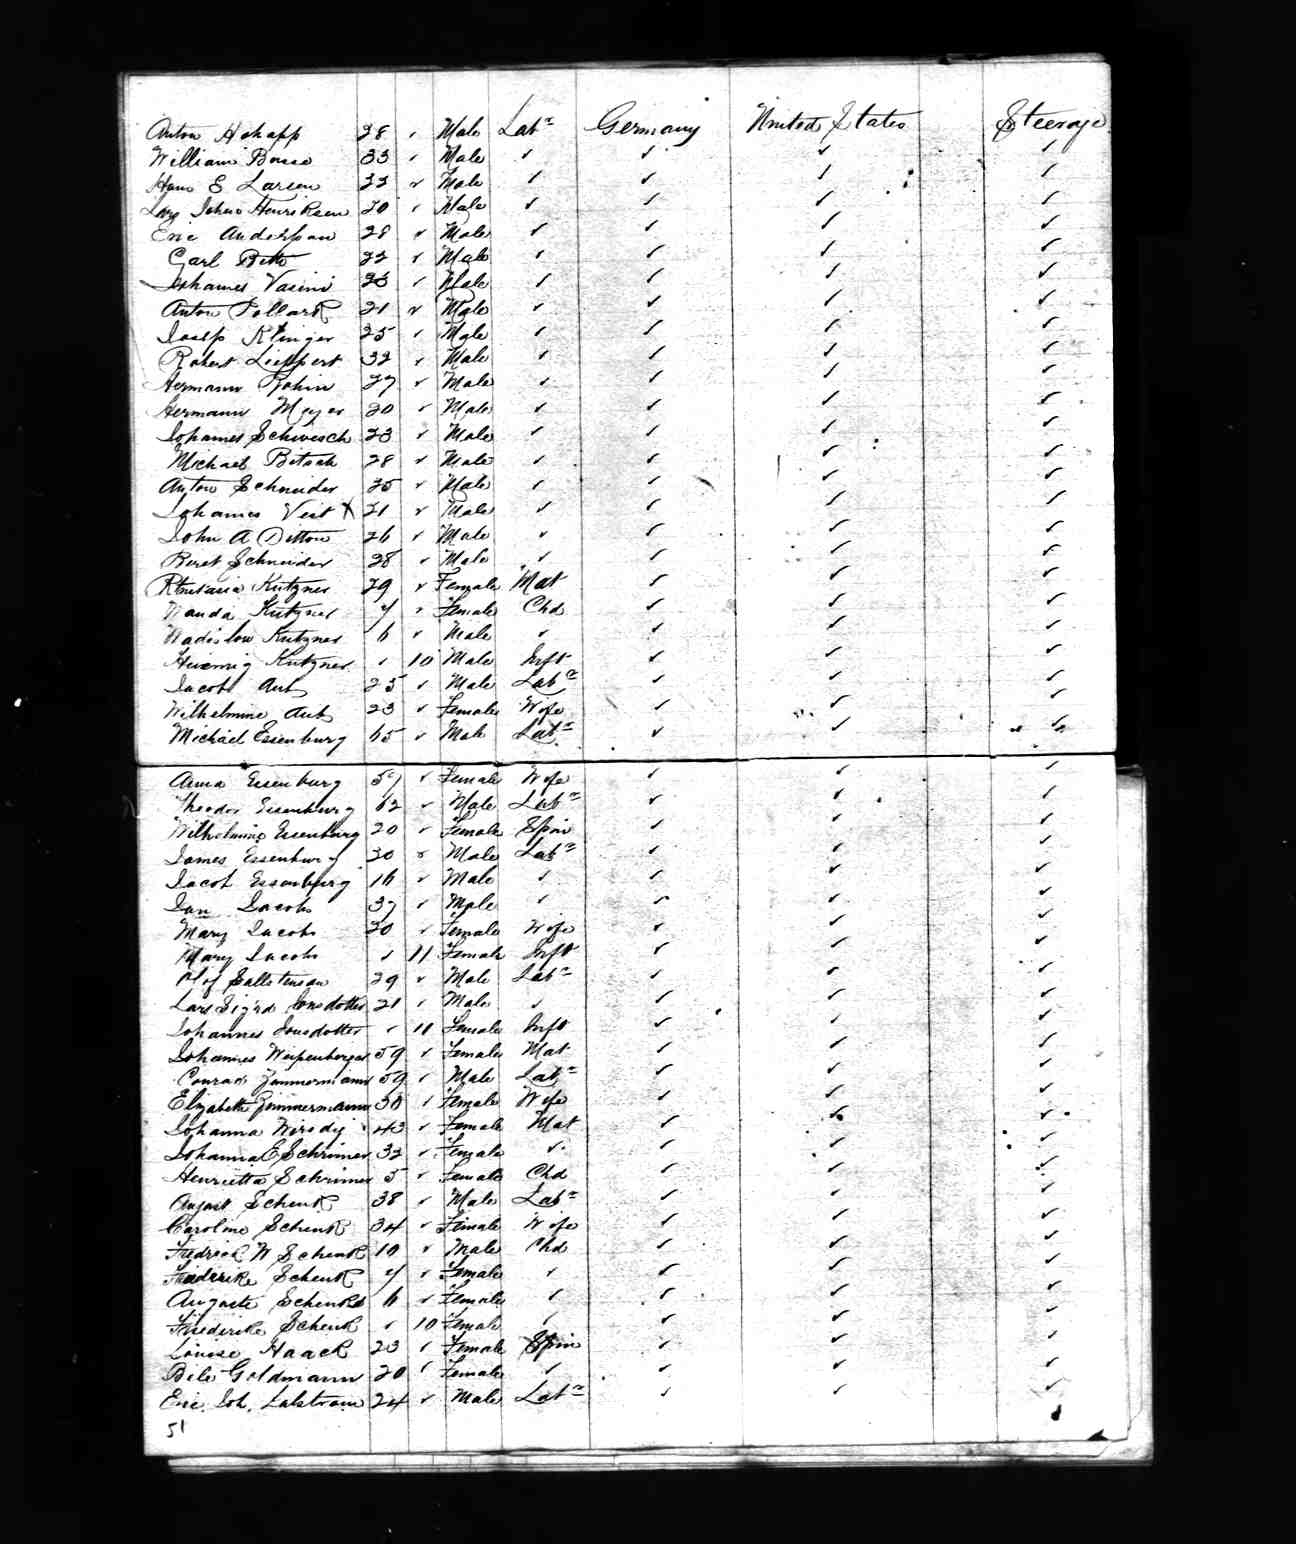 Anton Hokapp 28 ✓ Male Lab^r Germany United States Steerage
William Bosse 33 ✓ Male ✓ ✓ ✓ ✓
Hans E Larsen 22 ✓ Male ✓ ✓ ✓ ✓
Lars Johan Henriksen 20 ✓ Male ✓ ✓ ✓ ✓
Eric Andersson 28 ✓ Male ✓ ✓ ✓ ✓
Carl 22 ✓ Male ✓ ✓ ✓ ✓
Johannes Vasini 23 ✓ Male ✓ ✓ ✓ ✓
Anton Pollark 21 ✓ Male ✓ ✓ ✓ ✓
Joseph Klinger 25 ✓ Male ✓ ✓ ✓ ✓
Robert Lieppert 32 ✓ Male ✓ ✓ ✓ ✓
Hermann Rohin 27 ✓ Male ✓ ✓ ✓ ✓
Hermann Meyer 20 ✓ Male ✓ ✓ ✓ ✓
Johannes Schivesch 23 ✓ Male ✓ ✓ ✓ ✓
Michael Bitsch 28 ✓ Male ✓ ✓ ✓ ✓
Anton Schneider 25 ✓ Male ✓ ✓ ✓ ✓
Johannes Veit X 21 ✓ Male ✓ ✓ ✓ ✓
John A Ditton 26 ✓ Male ✓ ✓ ✓ ✓
Schneider 28 ✓ Male ✓ ✓ ✓ ✓
Kutzner 29 ✓ Female Mat ✓ ✓ ✓
Wanda Kutzner 7 ✓ Female Chd ✓ ✓ ✓
Wadislow Kutzner 6 ✓ Male ✓ ✓ ✓ ✓
Kutzner ✓ 10 Male Inft ✓ ✓ ✓
Jacob Aub 25 ✓ Male Lab^r ✓ ✓ ✓
Wilhelmine Aub 23 ✓ Female Wife ✓ ✓ ✓
Michael Essenburg 65 ✓ Male Lab^r ✓ ✓ ✓
Anna Essenburg 57 ✓ Female Wife ✓ ✓ ✓
Theodor Essenburg 62 ✓ Male Lab^r ✓ ✓ ✓
Wilhelmine Essenburg 20 ✓ Female Spin ✓ ✓ ✓
James Essenburg 30 ✓ Male Lab^r ✓ ✓ ✓
Jacob Essenburg 16 ✓ Male ✓ ✓ ✓ ✓
Jan Jacobs 37 ✓ Male ✓ ✓ ✓ ✓
Mary Jacobs 30 ✓ Female Wife ✓ ✓ ✓
Mary Jacobs ✓ 11 Female Inft ✓ ✓ ✓
Olof Sallstensan 29 ✓ Male Lab^r ✓ ✓ ✓
Lars Sigrd Jonsdotter 21 ✓ Male ✓ ✓ ✓ ✓
Johannes Jonsdotter ✓ 10 Female Inft ✓ ✓ ✓
Johannes Weipenberger 59 ✓ Female Mat ✓ ✓ ✓
Conrad Zimmermann 59 ✓ Male Lab^r ✓ ✓ ✓
Elizabeth Zimmermann 50 ✓ Female Wife ✓ ✓ ✓
Johanna Wirsdy 43 ✓ Female Mat ✓ ✓ ✓
Johanna E Schrimer 32 ✓ Female ✓ ✓ ✓ ✓
Henrietta Schrimer 5 ✓ Female Chd ✓ ✓ ✓
August Schenk 38 ✓ Male Lab^r ✓ ✓ ✓
Caroline Schenk 34 ✓ Female Wife ✓ ✓ ✓
Fredreck W Schenk 10 ✓ Male Chd ✓ ✓ ✓
Fridrike Schenk 7 ✓ Female ✓ ✓ ✓ ✓
Auguste Schenk 6 ✓ Female ✓ ✓ ✓ ✓
Friederike Schenk ✓ 10 Female ✓ ✓ ✓ ✓
Louise Haack 23 ✓ Female Spin ✓ ✓ ✓
Bele Goldmann 20 ✓ Female ✓ ✓ ✓ ✓
Eric Joh. Lalstrom 24 ✓ Male Lab^r ✓ ✓ ✓
51